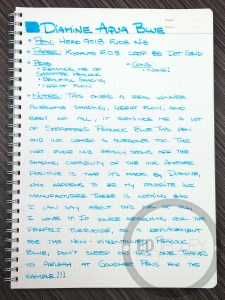 Diamine Aqua Blue
• Pen: Hero 9018 Fude Nib
• Paper: Kyokuto F.O.B. COOP B5 Dot Grid
• Pros:
• Reminds me of Sheaffer Peacock
• Beautiful Shading
• Great Flow
• Cons:
• None!
• Notes: This one's a real winner.
Awesome shading, great flow, and
best of all, it reminds me a lot
of Sheaffer's Peacock Blue. This pen
and ink combo is awesome too. The
wet fude nib really shows off the
shading capability of the ink. Another
positive is that it's made by Diamine,
who happens to be my favorite ink
manufacturer. There is nothing bad
I can say about this ink at all.
I love it. If you're searching for the
perfect turquoise, or a replacement
for the now-hard-to-find Peacock
Blue, don't sleep on this one. Thanks
to Azizah at Gourmet Pens for the
sample!!!